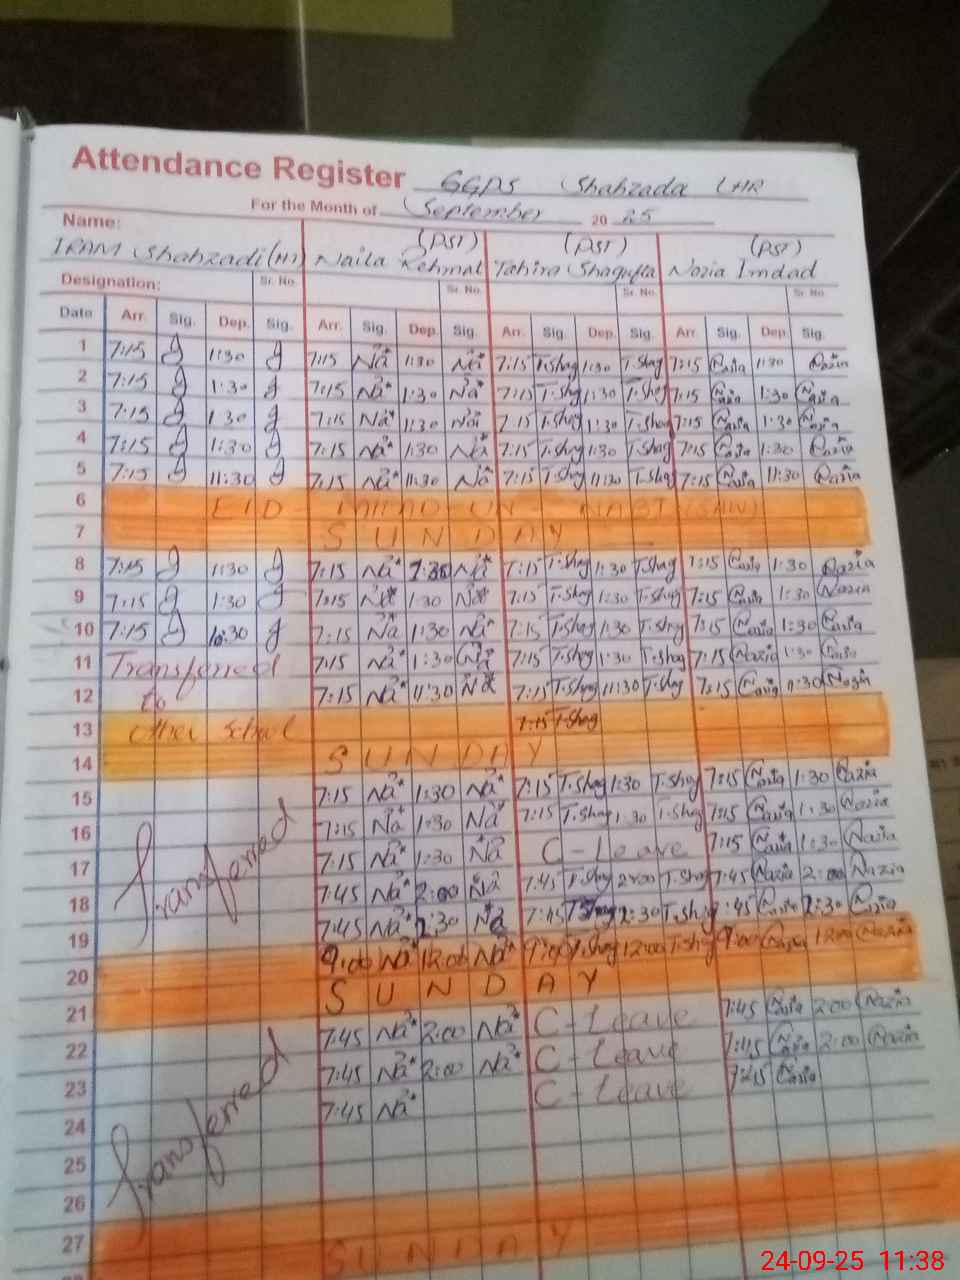 Attendance Register GGPS Shahzada LHR
For the Month of September 20 25
Name: (PST) (PST) (PST)
IRAM Shahzadi (H) Naila Rehmat Tahira Shagufta Nazia Imdad
Designation: Sr. No. Sr. No. Sr. No. Sr. No.
Date Arr. Sig. Dep. Sig. Arr. Sig. Dep. Sig. Arr. Sig. Dep. Sig. Arr. Sig. Dep. Sig.
1 7:15 1:30 7:15 Na 1:30 Na 7:15 T.Shag 1:30 T.Shag 7:15 Nazia 1:30 Nazia
2 7:15 1:30 7:15 Na 1:30 Na 7:15 T.Shag 1:30 T.Shag 7:15 Nazia 1:30 Nazia
3 7:15 1 30 7:15 Na 1:30 Na 7:15 T.Shag 1:30 T.Shag 7:15 Nazia 1:30 Nazia
4 7:15 1:30 7:15 Na 1:30 Na 7:15 T.Shag 1:30 T.Shag 7:15 Nazia 1:30 Nazia
5 7:15 11:30 7:15 Na 11:30 Na 7:15 T.Shag 11:30 T.Shag 7:15 Nazia 11:30 Nazia
6 EID - MILAD - UN - NABI (SAW)
7 SUNDAY
8 7:15 1:30 7:15 Na 1:30 Na 7:15 T.Shag 1:30 T.Shag 7:15 Nazia 1:30 Nazia
9 7:15 1:30 7:15 Na 1:30 Na 7:15 T.Shag 1:30 T.Shag 7:15 Nazia 1:30 Nazia
10 7:15 7:15 Na 1:30 Na 7:15 T.Shag 1:30 T.Shag 7:15 Nazia 1:30 Nazia
11 Transferred 7:15 Na 1:30 Na 7:15 T.Shag 1:30 T.Shag 7:15 Nazia 1:30 Nazia
12 to 7:15 Na 11:30 Na 7:15 T.Shag 11:30 T.Shag 7:15 Nazia 11:30 Nazia
13 other School 7:15 T.Shag
14 SUNDAY
15 7:15 Na 1:30 Na 7:15 T.Shag 1:30 T.Shag 7:15 Nazia 1:30 Nazia
16 7:15 Na 1:30 Na 7:15 T.Shag 1:30 T.Shag 7:15 Nazia 1:30 Nazia
17 Transferred 7:15 Na 1:30 Na C-Leave 7:15 Nazia 1:30 Nazia
18 7:45 Na 2:00 Na 7:45 T.Shag 2:00 T.Shag 7:45 Nazia 2:00 Nazia
19 7:45 Na 2:30 Na 7:45 T.Shag 2:30 T.Shag 7:45 Nazia 2:30 Nazia
20 9:00 Na 12:00 Na 9:00 T.Shag 12:00 T.Shag 9:00 Nazia 12:00 Nazia
21 SUNDAY
22 7:45 Na 2:00 Na C-Leave 7:45 Nazia 2:00 Nazia
23 7:45 Na 2:00 Na C-Leave 7:45 Nazia 2:00 Nazia
24 Transferred 7:45 Na C-Leave 7:45 Nazia
25
26
27 SUNDAY
24-09-25 11:38